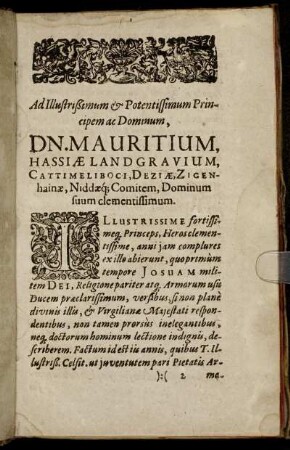 Ad Illustrißimum & Potentissimum Prin-
cipem ac Dominum,
DN. MAURITIUM,
HASSIÆ LANDGRAVIUM,
CATTIMELIBOCI, DEZIÆ, ZIGEN-
hainæ, Niddæq; Comitem, Dominum
suum clementissimum.
ILLUSTRISSIME fortissi-
meq, Princeps, Heros clemen-
tissime, anni jam complures
ex illo abierunt, quo primùm
tempore JOSUAM mili-
tem DEI, Religione pariter atq, Armorum usu
Ducem praeclarissimum, versibus, si non planè
divinis illis, & Virgilianæ Majestati respon-
dentibus, non tamen prorsus inelegantibus,
neq, doctorum hominum lectione indignis, de-
scriberem. Factum id est iis annis, quibus T. Il-
lustriss. Celsit. ut juventutem pari Pietatis Ar-
):( 2 me-